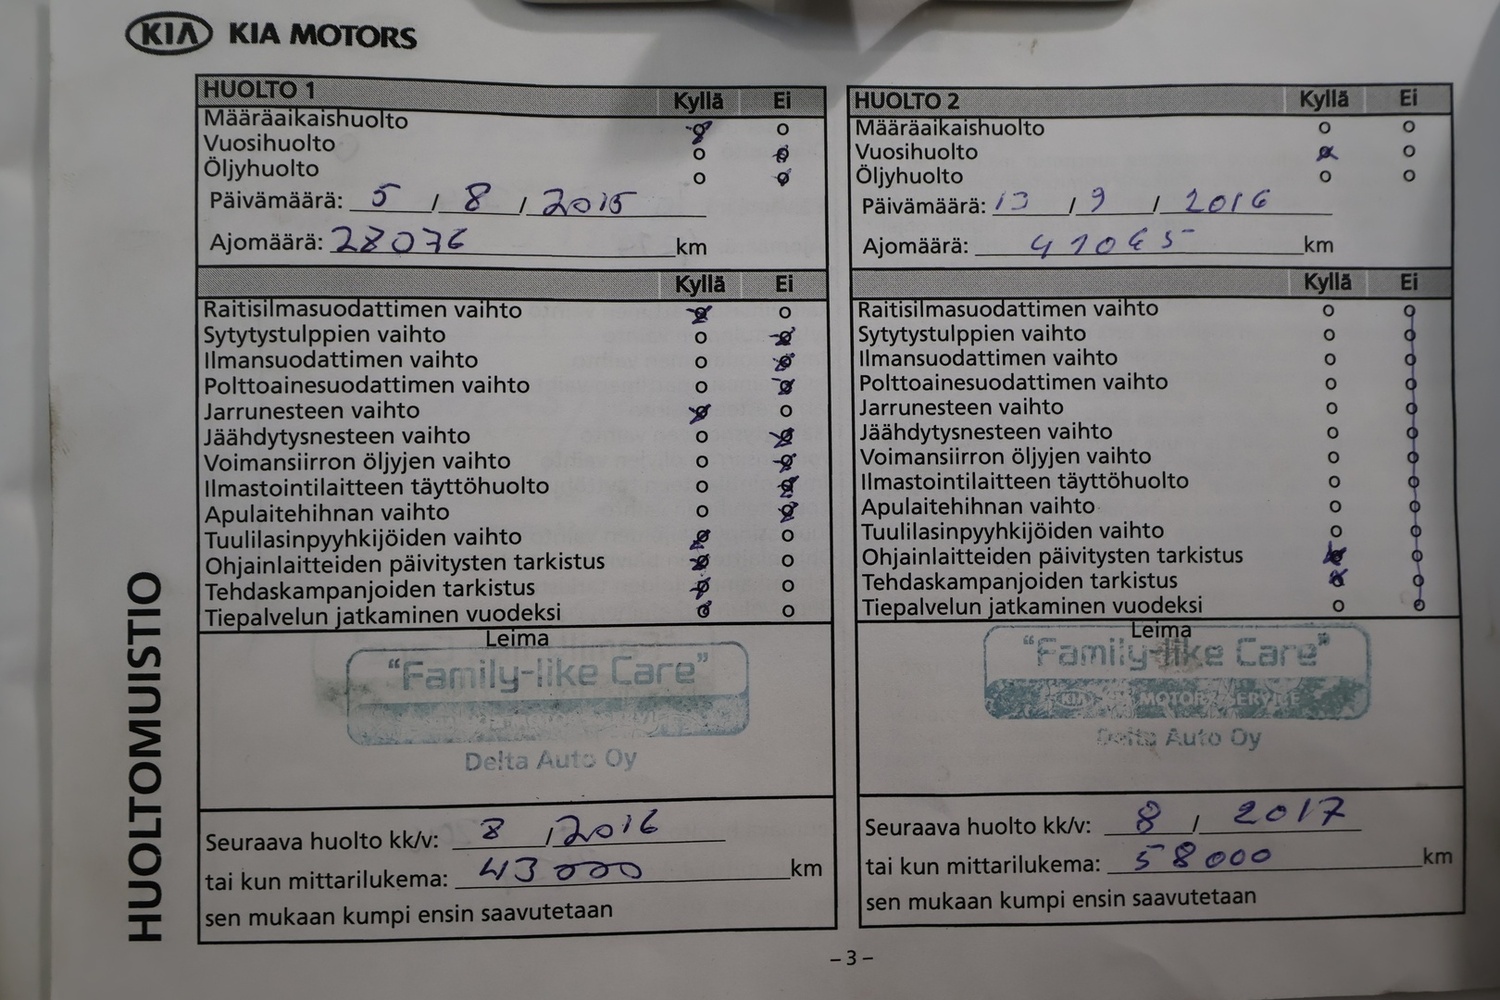 KIA KIA MOTORS
HUOLTOMUISTIO
HUOLTO 1 Kyllä Ei
Määräaikaishuolto
Vuosihuolto
Öljyhuolto
Päivämäärä: 5 / 8 / 2015
Ajomäärä: 28076 km
Kyllä Ei
Raitisilmasuodattimen vaihto
Sytytystulppien vaihto
Ilmansuodattimen vaihto
Polttoainesuodattimen vaihto
Jarrunesteen vaihto
Jäähdytysnesteen vaihto
Voimansiirron öljyjen vaihto
Ilmastointilaitteen täyttöhuolto
Apulaitehihnan vaihto
Tuulilasinpyyhkijöiden vaihto
Ohjainlaitteiden päivitysten tarkistus
Tehdaskampanjoiden tarkistus
Tiepalvelun jatkaminen vuodeksi
Leima
"Family-like Care"
Delta Auto Oy
Seuraava huolto kk/v: 8 / 2016
tai kun mittarilukema: 43000 km
sen mukaan kumpi ensin saavutetaan
HUOLTO 2 Kyllä Ei
Määräaikaishuolto
Vuosihuolto
Öljyhuolto
Päivämäärä: 13 / 9 / 2016
Ajomäärä: 41065 km
Kyllä Ei
Raitisilmasuodattimen vaihto
Sytytystulppien vaihto
Ilmansuodattimen vaihto
Polttoainesuodattimen vaihto
Jarrunesteen vaihto
Jäähdytysnesteen vaihto
Voimansiirron öljyjen vaihto
Ilmastointilaitteen täyttöhuolto
Apulaitehihnan vaihto
Tuulilasinpyyhkijöiden vaihto
Ohjainlaitteiden päivitysten tarkistus
Tehdaskampanjoiden tarkistus
Tiepalvelun jatkaminen vuodeksi
Leima
"Family-like Care"
KIA MOTORS SERVICE
Delta Auto Oy
Seuraava huolto kk/v: 8 / 2017
tai kun mittarilukema: 58000 km
sen mukaan kumpi ensin saavutetaan
– 3 –